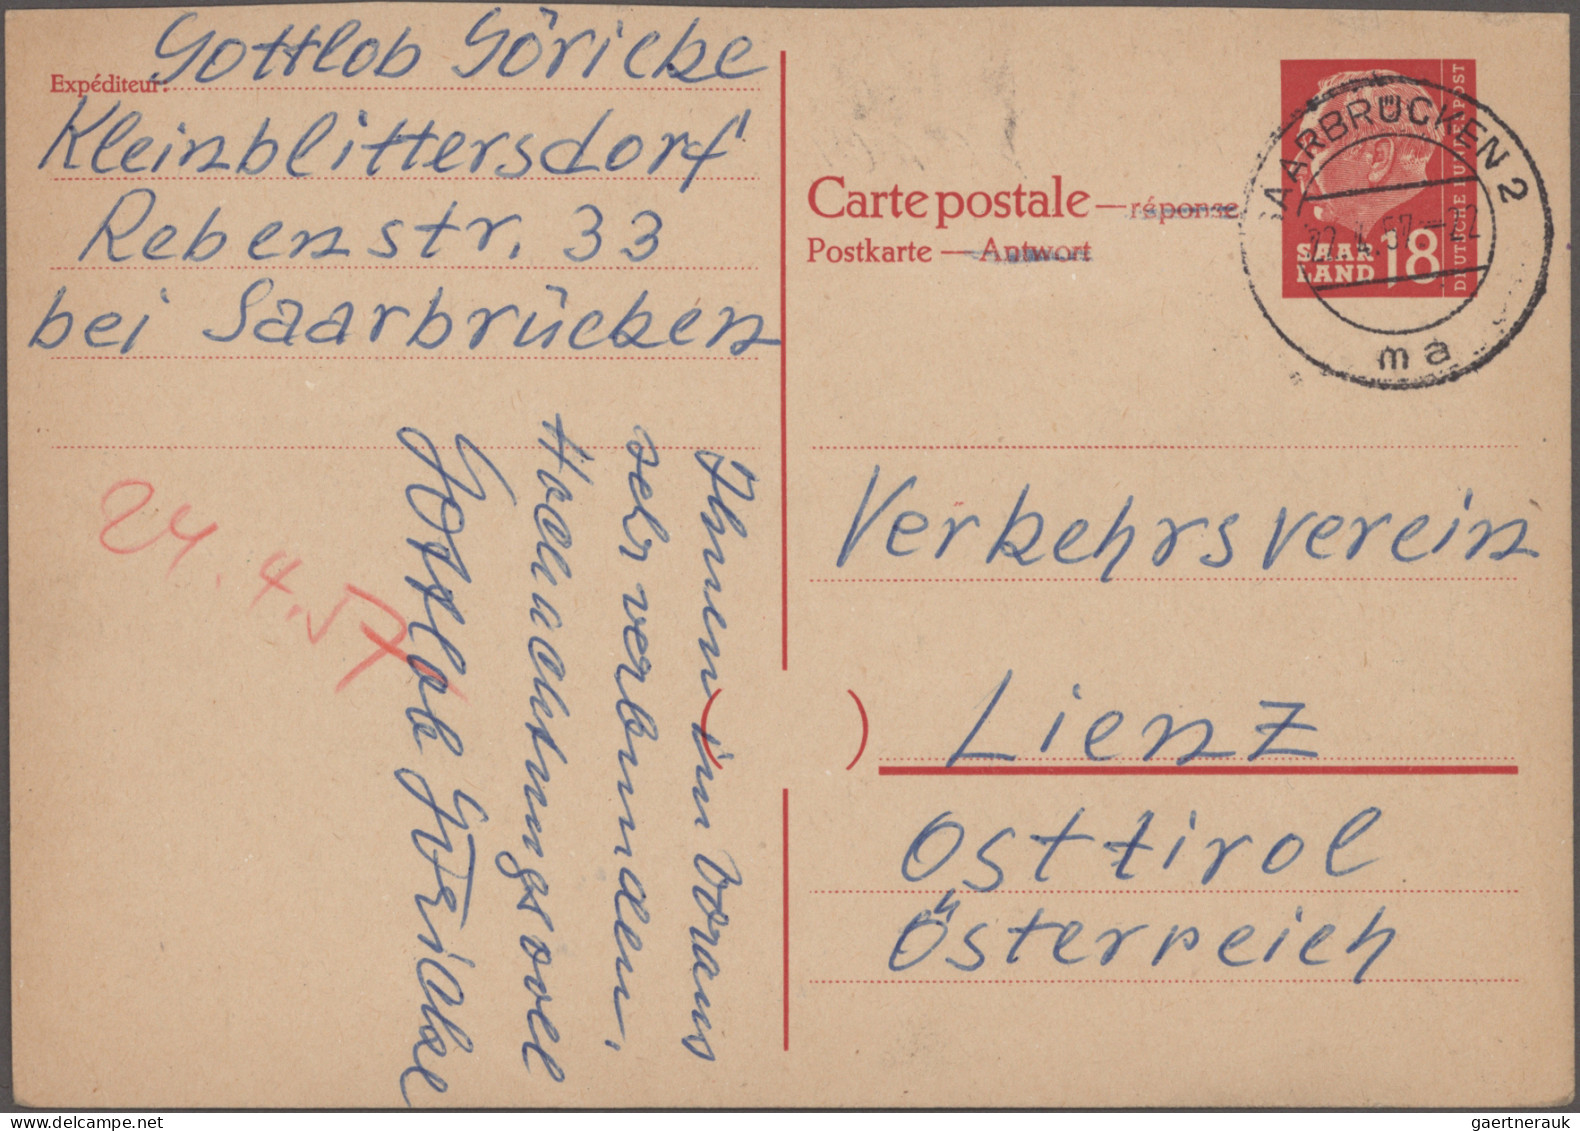 Expéditeur: Gottlob Göricke
Kleinblittersdorf
Rebenstr. 33
bei Saarbrücken
Ihnen im Voraus
sehr verbunden.
Hochachtungsvoll
Gottlob Göricke
24.4.57
Carte postale — réponse
Postkarte — Antwort
SAAR
LAND 18
DEUTSCHE BUNDESPOST
SAARBRÜCKEN 2
22.4.57-22
ma
Verkehrsverein
Lienz
Osttirol
Österreich
gaertnerauk